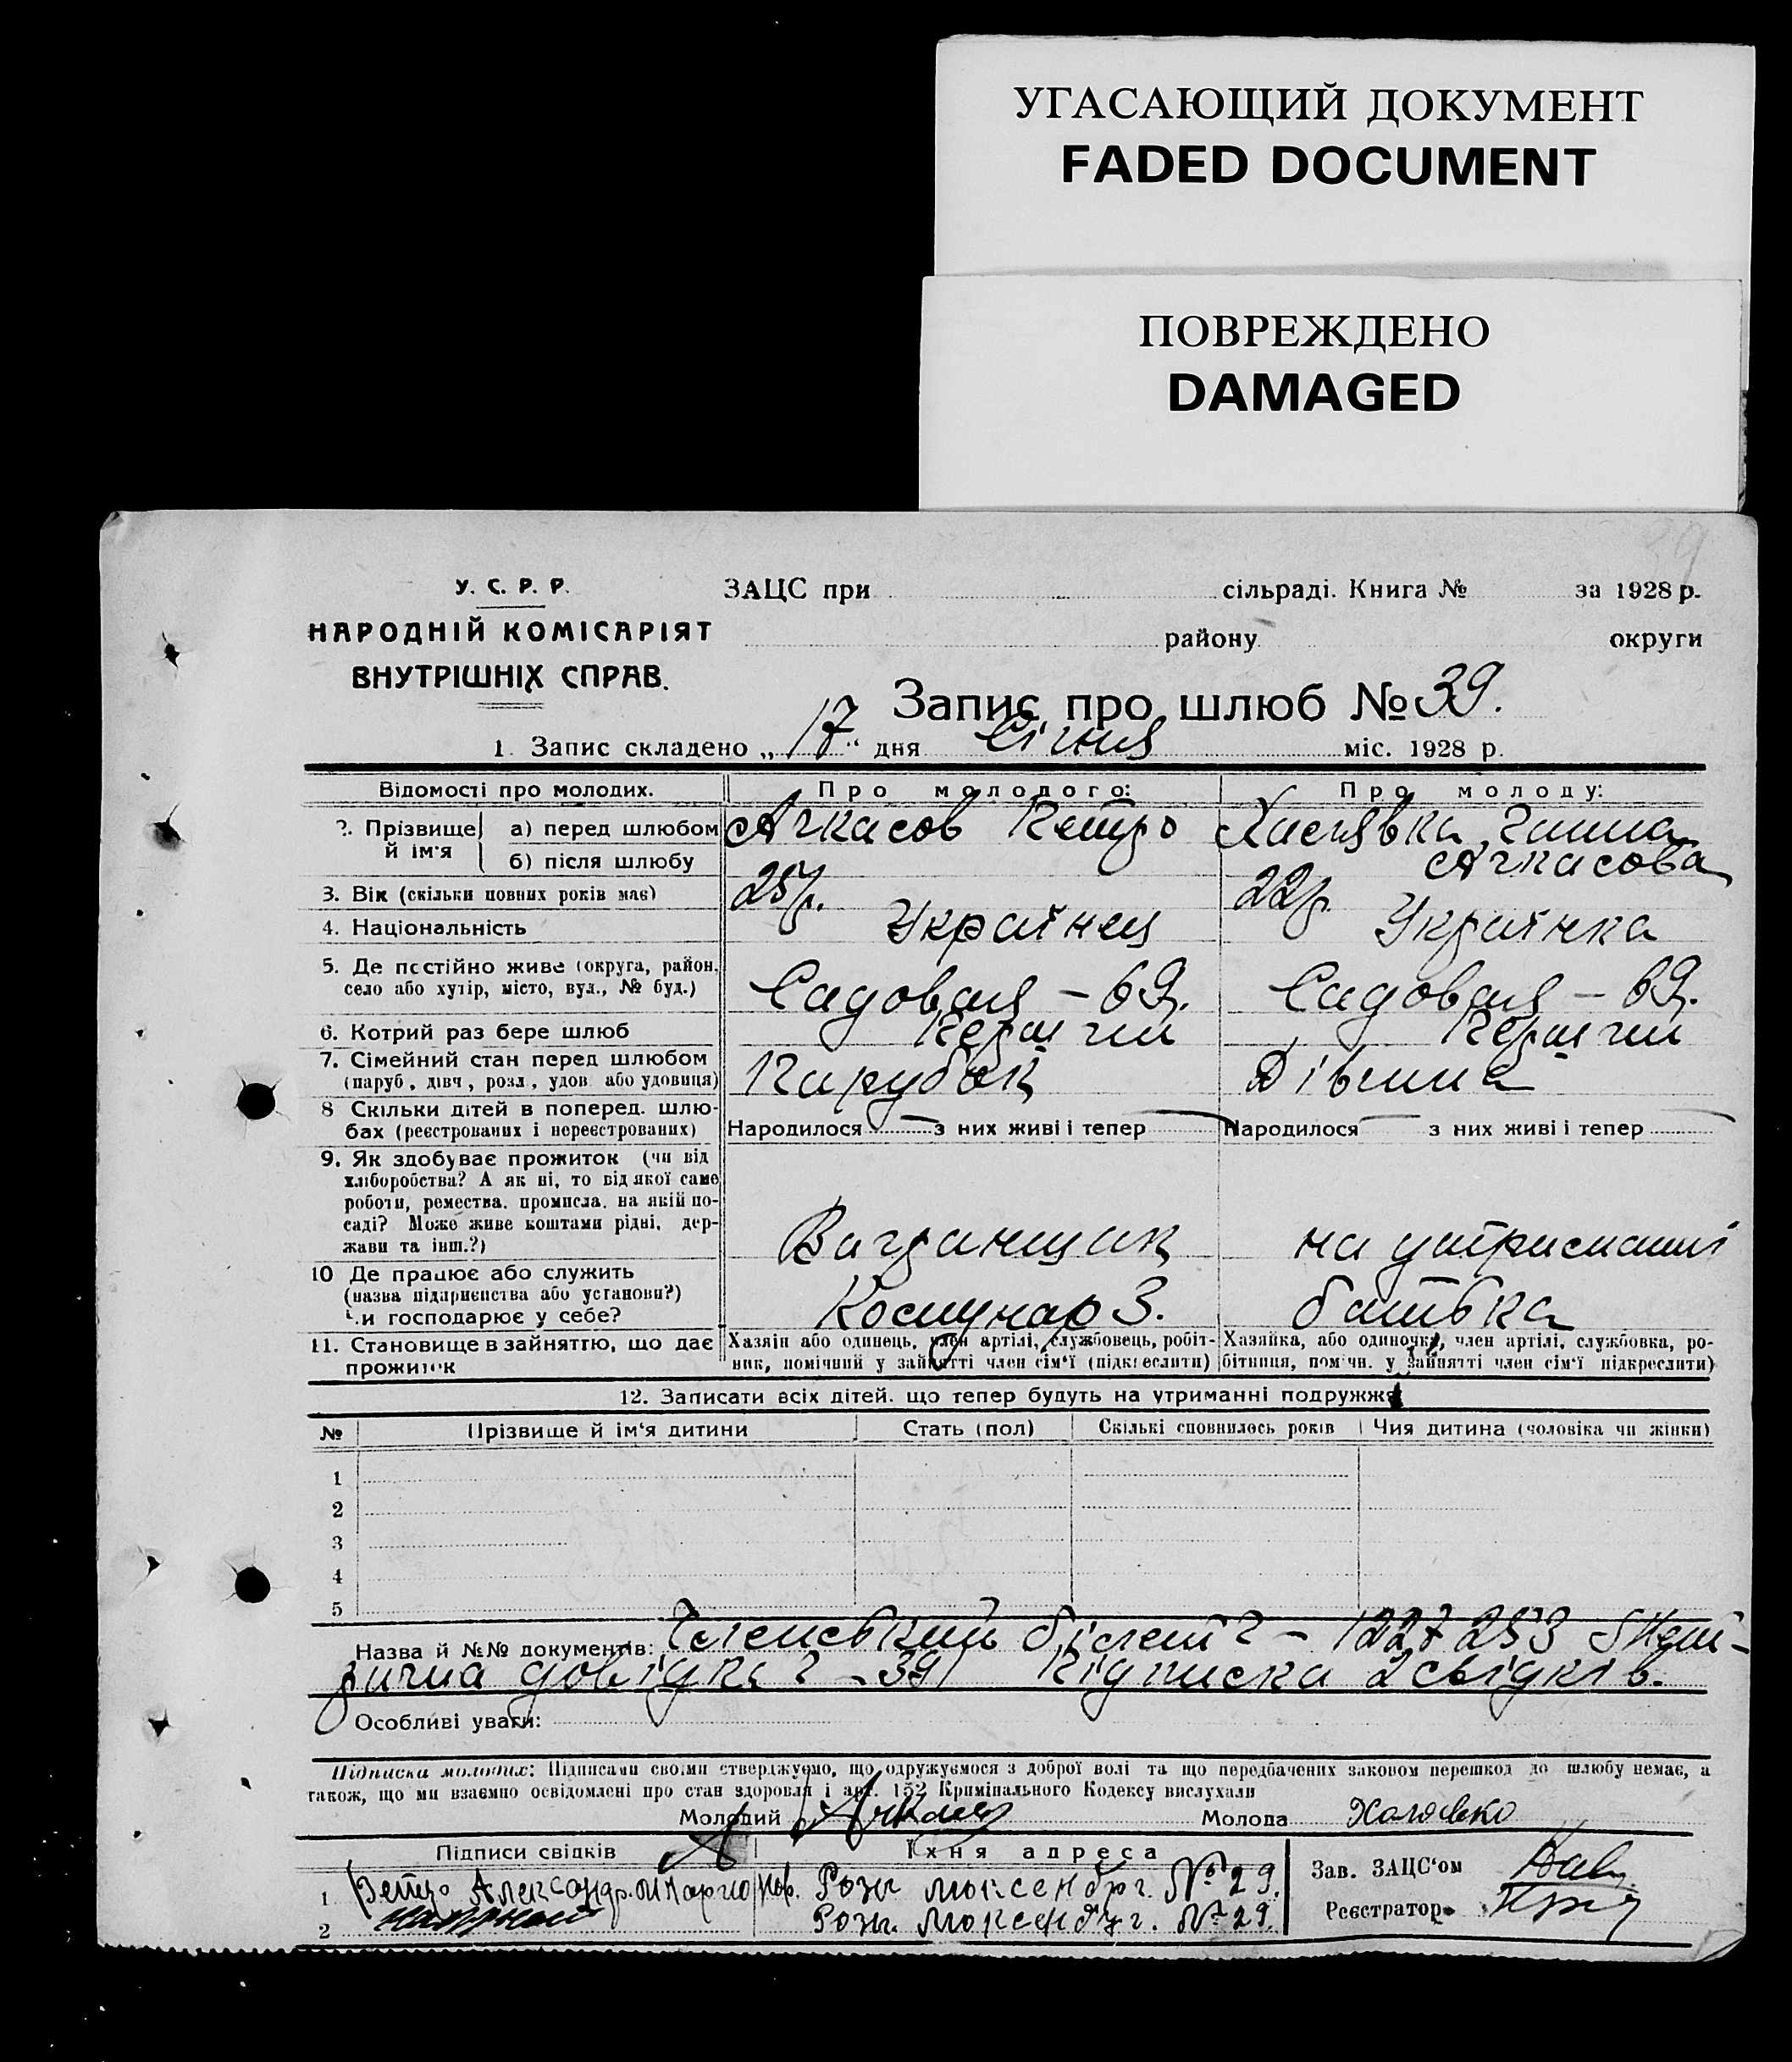 УГАСАЮЩИЙ ДОКУМЕНТ
FADED DOCUMENT
ПОВРЕЖДЕНО
DAMAGED
39
У. С. Р. Р.
НАРОДНІЙ КОМІСАРІЯТ
ВНУТРІШНІХ СПРАВ.
ЗАЦС при сільраді. Книга № за 1928 р.
району округи
Запис про шлюб № 39.
1. Запис складено „17“ дня Січня міс. 1928 р.
Відомості про молодих. Про молодого: Про молоду:
2. Прізвище й ім'я а) перед шлюбом Ачкасов Петро Ганна
б) після шлюбу Ачкасова
3. Вік (скільки повних років має) 25р. 22р.
4. Національність Українец Українка
5. Де постійно живе (округа, район, село або хутір, місто, вул., № буд.) Садовая – 69. Садовая – 69.
6. Котрий раз бере шлюб Перший Перший
7. Сімейний стан перед шлюбом (паруб, дівч, розл, удов. або удовиця) Парубок Дівчина
8 Скільки дітей в поперед. шлюбах (реєстрованих і нереєстрованих) Народилося — з них живі і тепер — Народилося — з них живі і тепер —
9. Як здобуває прожиток (чи від хліборобства? А як ні, то від якої саме роботи, ремества, промисла, на якій посаді? Може живе коштами рідні, держави та інш.?) Вагранщик на утриманні
10 Де працює або служить (назва підприємства або установи?) Чи господарює у себе? Комунар З. батька
11. Становище в зайняттю, що дає прожиток Хазяїн або одинець, член артілі, службовець, робітник, помічний у зайнятті член сім'ї (підкреслити) Хазяйка, або одиночка, член артілі, службовка, робітниця, помічн. у зайнятті член сім'ї підкреслити)
12. Записати всіх дітей, що тепер будуть на утриманні подружжя
№ Прізвище й ім'я дитини Стать (пол) Скількі сповнилось років Чия дитина (чоловіка чи жінки)
1
2
3
4
5
Назва й №№ документів: Членський білет – 1227253
довідка – 391 Підписка 2 свідків.
Особливі уваги:
Підписка молодих: Підписами своїми стверджуємо, що одружуємося з доброї волі та що передбачених законом перешкод до шлюбу немає, а
також, що ми взаємно освідомлені про стан здоровля і арт. 152 Кримінального Кодексу вислухали
Молодий Молода
Підписи свідків Їхня адреса Зав. ЗАЦС'ом
1 Александр Розы Люксенбрг. № 29.
2 Розы Люксенбург. № 29.
Реєстратор